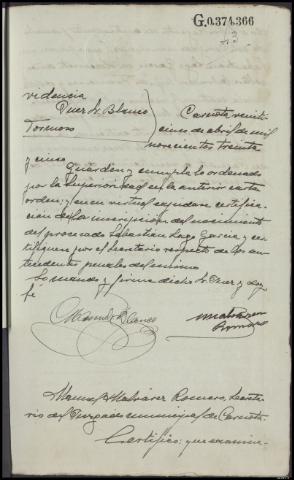 G.0.374.366
43
videncia
Juez Sr. Blanco
Tormoso
Carnota veinti
cinco de abril de mil
novecientos treinta
y cinco
Guardese y cumpla lo ordenado
por la Superioridad en la anterior carta
orden; y en su virtud expidase certifica
cion de la inscripcion del nacimiento
del procesado Sebastian Lago Garcia y cer
tifiquese por el Secretario respecto de los an
tecedentes penales del mismo
Lo mando y firma dicho Sr. Juez doy
fe
Manuel Blanco
Romero
Manuel Malvarez Romero, Secreta
rio del Juzgado municipal de Carnota
Certifico: que examina-